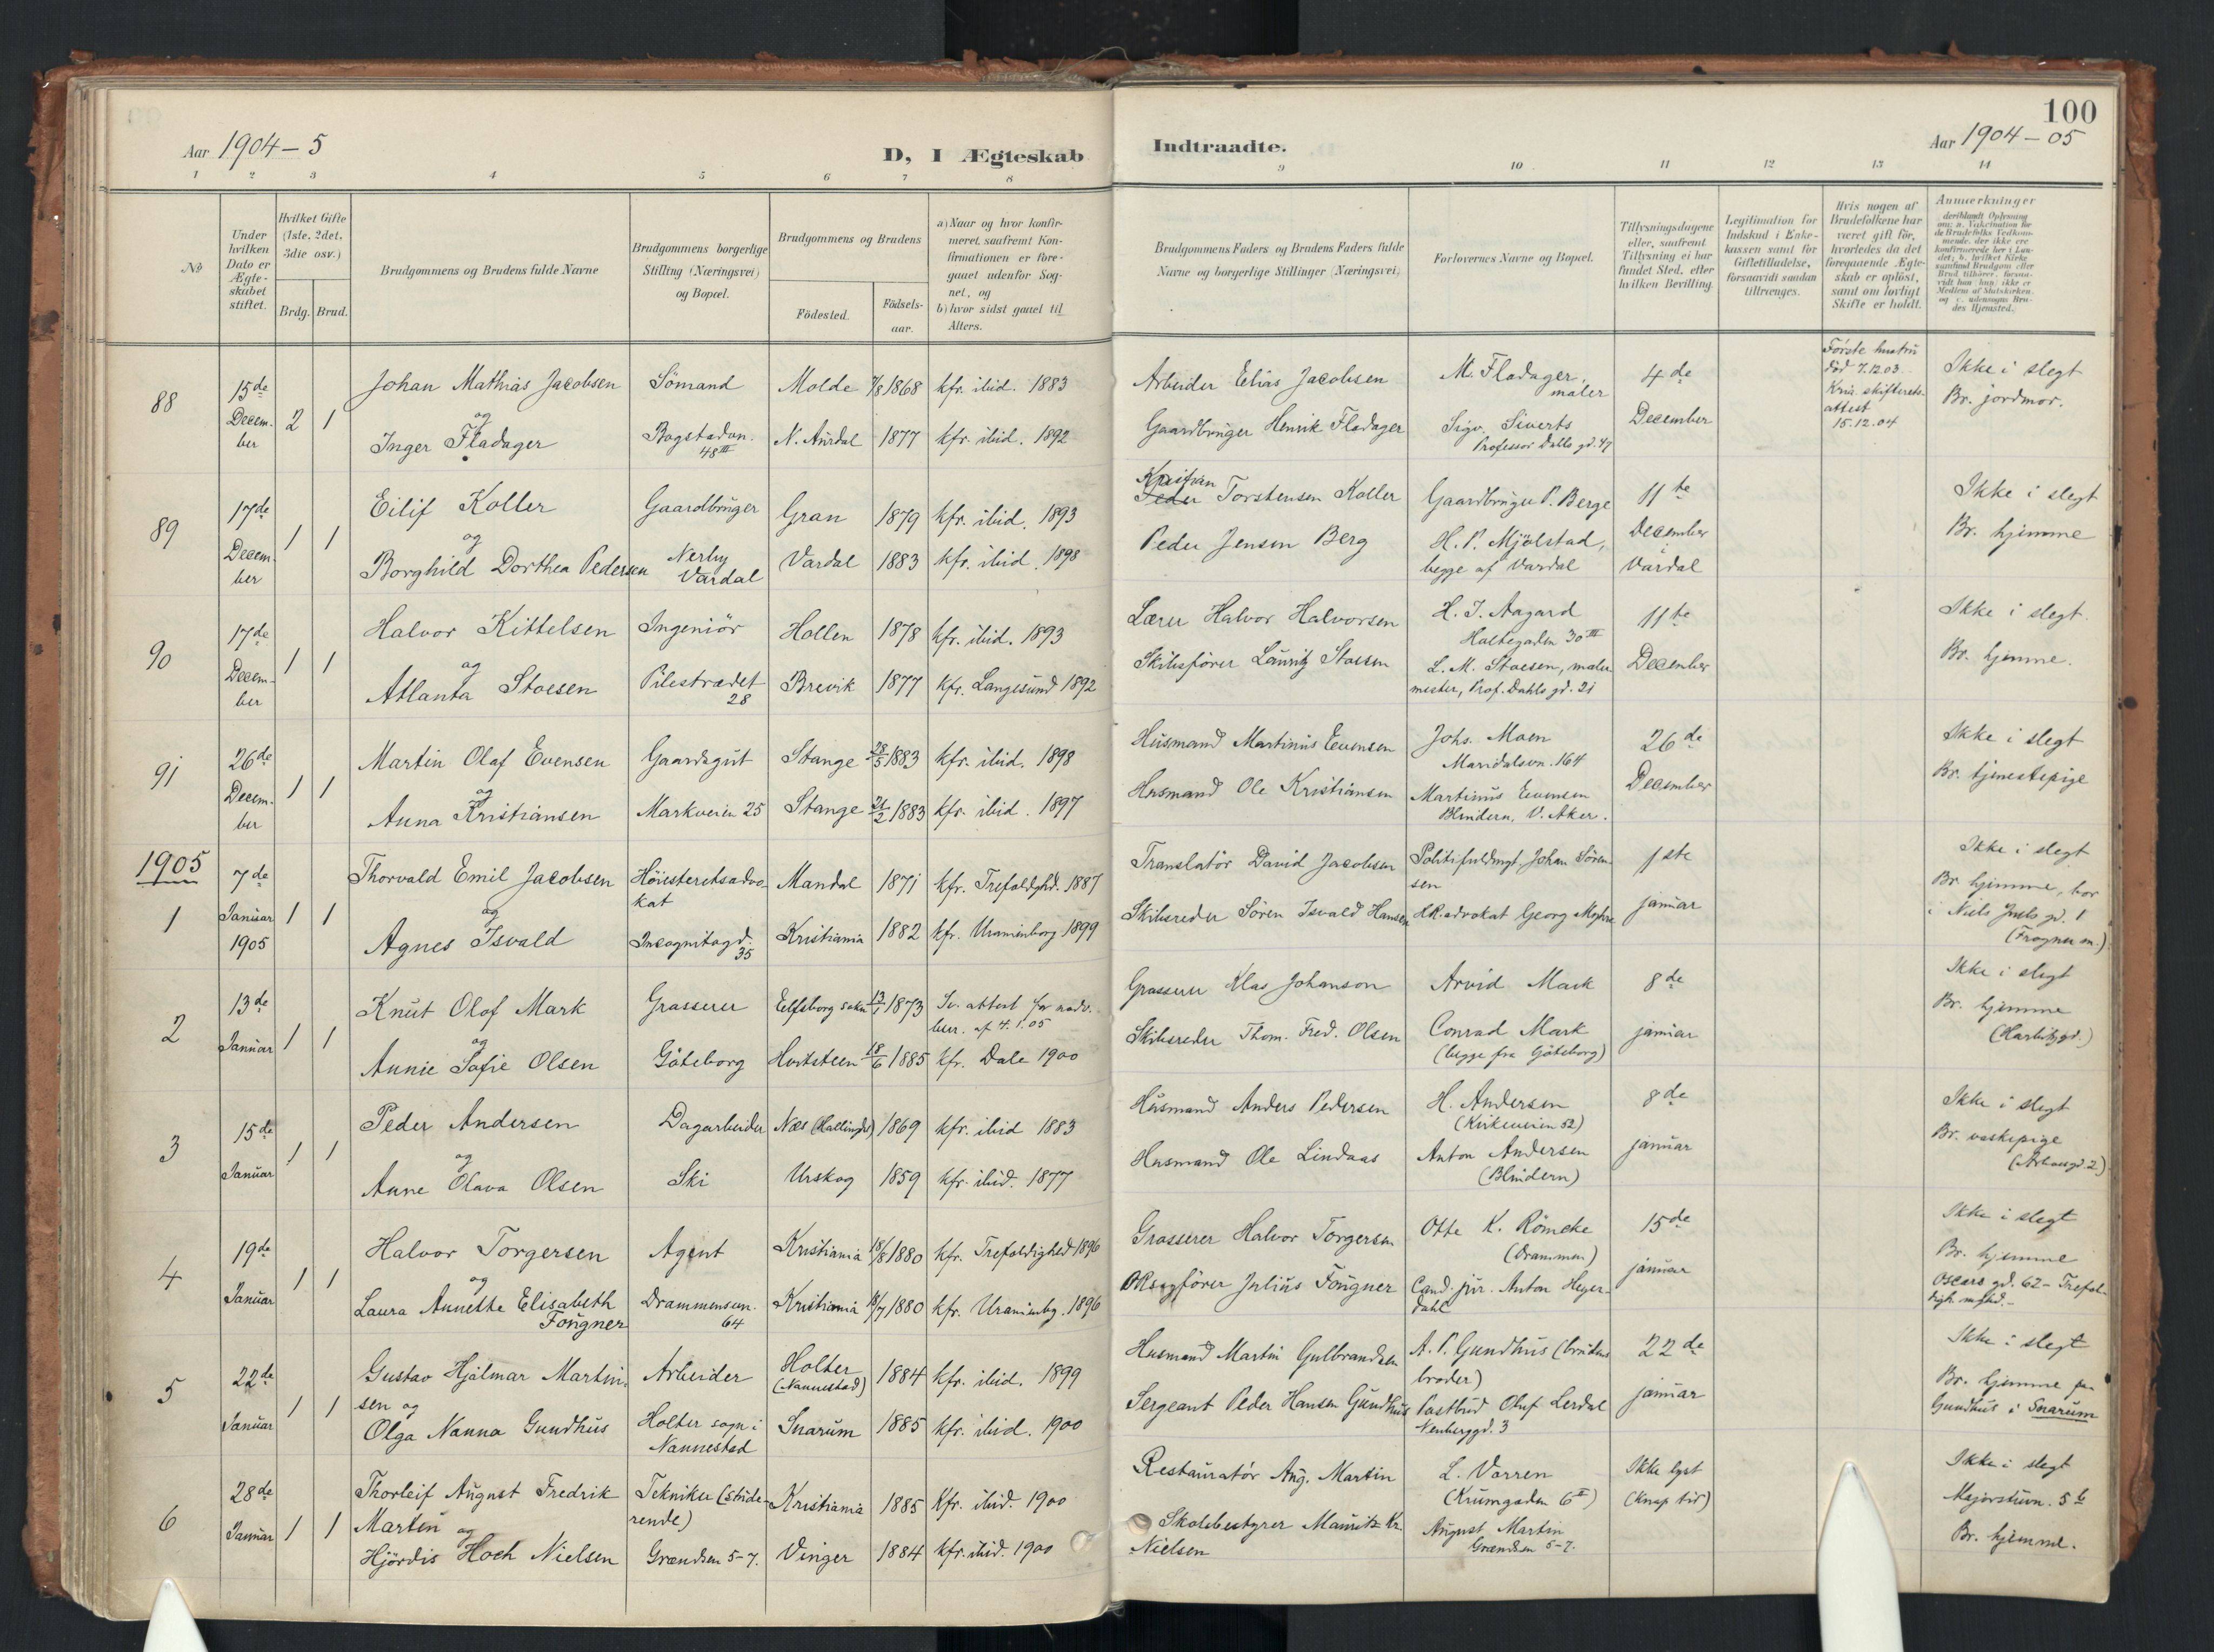 Aar 1904 - 5
D, I Ægteskab
1 2 3 4 5 6 7 8
No
Under hvilken Dato er Ægteskabet stiftet.
Hvilket Gifte (1ste, 2det, 3die osv.)
Brdg. Brud.
Brudgommens og Brudens fulde Navne
Brudgommens borgerlige Stilling (Næringsvei) og Bopæl.
Brudgommens og Brudens
Födested.
Födsels-aar.
a) Naar og hvor konfirmeret, saafremt Konfirmationen er foregaaet udenfor Sognet, og
b) hvor sidst gaaet til Alters.
88
15de Decem-ber
2 1
Johan Mathias Jacobsen
og
Inger Fladager
Sömand
Bogstadvn. 48 III
Molde 7/8 1868 kfr. ibid. 1883
N. Aurdal 1877 kfr. ibid. 1892
89
17de Decem-ber
1 1
Eilif Koller
og
Borghild Dorthea Pedersen
Gaardbruger
Nerby Vardal
Gran 1879 kfr. ibid. 1893
Vardal 1883 kfr. ibid. 1898
90
17de Decem-ber
1 1
Halvor Kittelsen
og
Atlanta Stoesen
Ingeniör
Pilestrædet 28
Hollen 1878 kfr. ibid. 1893
Brevik 1877 kfr. Langesund 1892
91
26de Decem-ber
1 1
Martin Olaf Evensen
og
Anna Kristiansen
Gaardsgut
Markveien 25
Stange 28/5 1883 kfr. ibid. 1898
Stange 21/2 1883 kfr. ibid. 1897
1905
1
7de Januar 1905
1 1
Thorvald Emil Jacobsen
og
Agnes Isvald
Höiesteretsadvo-kat
Incognitogd. 35
Mandal 1871 kfr. Trefoldghd. 1887
Kristiania 1882 kfr. Uranienborg 1899
2
13de Januar
1 1
Knut Olof Mark
og
Annie Sofie Olsen
Grosserer
Göteborg
Elfsborg sokn 13/1 1873 Sv. attest for nadv. ber. af 4.1.05
Hvitsteen 18/6 1885 kfr. Dale 1900
3
15de Januar
1 1
Peder Andersen
og
Anne Olava Olsen
Dagarbeider
Ski
Næs (Hallingd) 1869 kfr. ibid 1883
Urskog 1859 kfr. ibid. 1877
4
19de Januar
1 1
Halvor Torgersen
og
Laura Annette Elisabeth Fougner
Agent
Drammensvn. 64
Kristiania 18/8 1880 kfr. Trefoldighed 1896
Kristiania 18/7 1880 kfr. Uranienbg. 1896
5
22de Januar
1 1
Gustav Hjalmar Martin-
sen og
Olga Nanna Gundhus
Arbeider
Holter sogn i Nannestad
Holter (Nannestad) 1884 kfr. ibid. 1899
Snarum 1885 kfr. ibid. 1900
6
28de Januar
1 1
Thorleif August Fredrik
Martin og
Hjördis Hoch Nielsen
Tekniker (stude-rende)
Grændsen 5-7.
Kristiania 1885 Kfr. ibid. 1900
Vinger 1884 kfr. ibid. 1900
100
Indtraadte.
Aar 1904 - 05
9 10 11 12 13 14
Brudgommens Faders og Brudens Faders fulde Navne og borgerlige Stillinger (Næringsvei)
Forlovernes Navne og Bopæl.
Tillysningsdagene eller, saafremt Tillysning ei har fundet Sted, efter hvilken Bevilling.
Legitimation for Indskud i Enkekassen samt for Giftetilladelse, forsaavidt saadan tiltrænges.
Hvis nogen af Brudefolkene har været gift för, hvorledes da det foregaaende Ægteskab er oplöst, samt om lovligt Skifte er holdt.
Anmærkninger
Arbeider Elias Jacobsen
Gaardbruger Henrik Fladager
M. Fladager, maler
Sigv. Siverts
Professor Dahls gd. 47
4de December
Förste hustru
död 7.12.03.
Kria. skifterets-
attest
15.12.04
Ikke i slegt
Br. jordmor.
Kristian
Peder Torstensen Koller
Peder Jensen Berg
Gaardbruger P. Berge
H. P. Mjölstad,
begge af Vardal
11te December Vardal
Ikke i slegt
Br. hjemme
Lærer Halvor Halvorsen
Skibsförer Lauritz Stoesen
H. J. Aagard
Holtegaden 30 III
L. M. Stoesen, maler
mester, Prof. Dahls gd. 21
11te December
Ikke i slegt.
Br. hjemme.
Husmand Martinus Evensen
Husmand Ole Kristiansen
Johs. Moen
Maridalsvn. 164
Martinus Evensen
Blindern, V. Aker.
26de December
Ikke i slegt
Br. tjenestepige
Translatör David Jacobsen
Skibsreder Sören Isvald Hansen
Politifuldmgt. Johan Sören-
sen
H.R.advokat Georg
1ste januar
Ikke i slegt
Br. hjemme, bor
i Niels Juels gd. 1
(Frogner m.)
Grosserer Klas Johanson
Skibsreder Thom. Fred. Olsen
Arvid Mark
Conrad Mark
(begge fra Göteborg)
8de januar
Ikke i slegt
Br. hjemme
(Harbitzgd.)
Husmand Anders Pedersen
Husmand Ole Lindaas
H. Andersen
(Kirkeveien 52)
Anton Andersen
(Blindern)
8de januar
Ikke i slegt
Br. vaskepige
Grosserer Halvor Torgersen
ORsagförer Julius Fougner
Otte K. Römcke
(Drammen)
Cand. jur. Anton Heyer-
dahl
15de januar
Ikke i slegt
Br. hjemme
Oscars gd. 62 - Trefol-
digh. mghd. -
Husmand Martin Gulbrandsen
Sergeant Peder Hansen Gundhus
A. P. Gundhus (brudens
broder)
Postbud Oluf Lerdal
Neuberggd. 3
22de januar
Ikke i slegt
Br. hjemme fra
Gundhus i Snarum
Restauratör Aug. Martin
Skolebestyrer Mauritz Kr.
Nielsen
L. Vorren
(Krumgaden 6 II)
August Martin
Grændsen 5-7.
Ikke lyst
(Knap tid)
Ikke i slegt
Majorstuvn. 5 b
Br. hjemme.